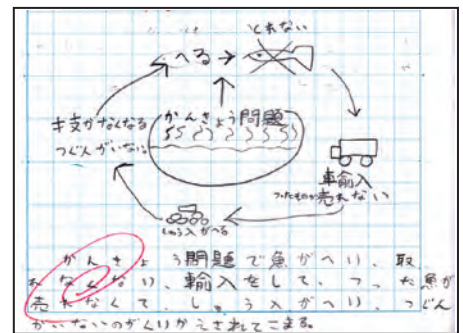 へる→
とれない
かんきょう問題
才支がなくなる
つぐ人がいない
車輸入
つったものが売れない
しゅう入がへる
かんきょう問題で魚がへり、取
れなくない、輸入をして、つった魚が
売れなくて、しゅう入がへり、つぐ人
がいないのがくりかえされてこまる。